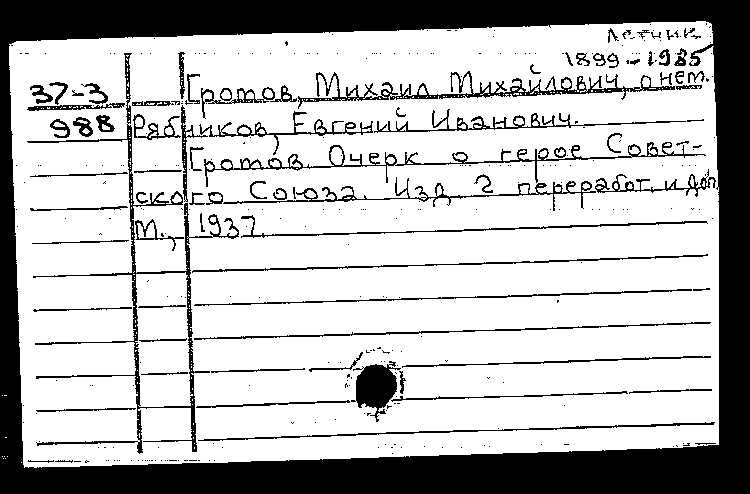 летчик
1899-1985
37-3 Громов, Михаил Михайлович, о нем.
988 Рябчиков, Евгений Иванович.
Громов. Очерк о герое Совет-
ского Союза. Изд. 2 переработ. и доп.
М., 1937.